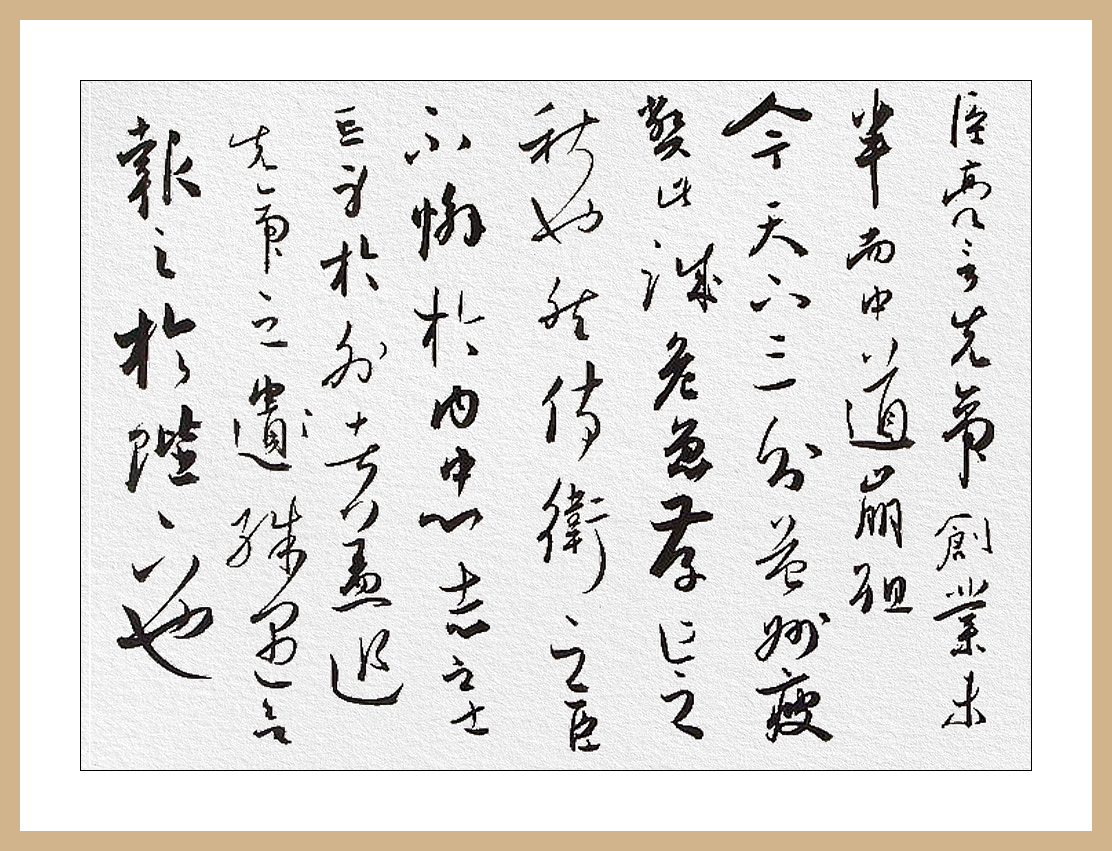 臣亮言先帝創業未
半而中道崩殂
今天下三分益州疲
弊此誠危急存亡之
秋也然侍衛之臣
不懈於內忠志之士
忘身於外者蓋追
先帝之遺殊遇
報之於陛下也